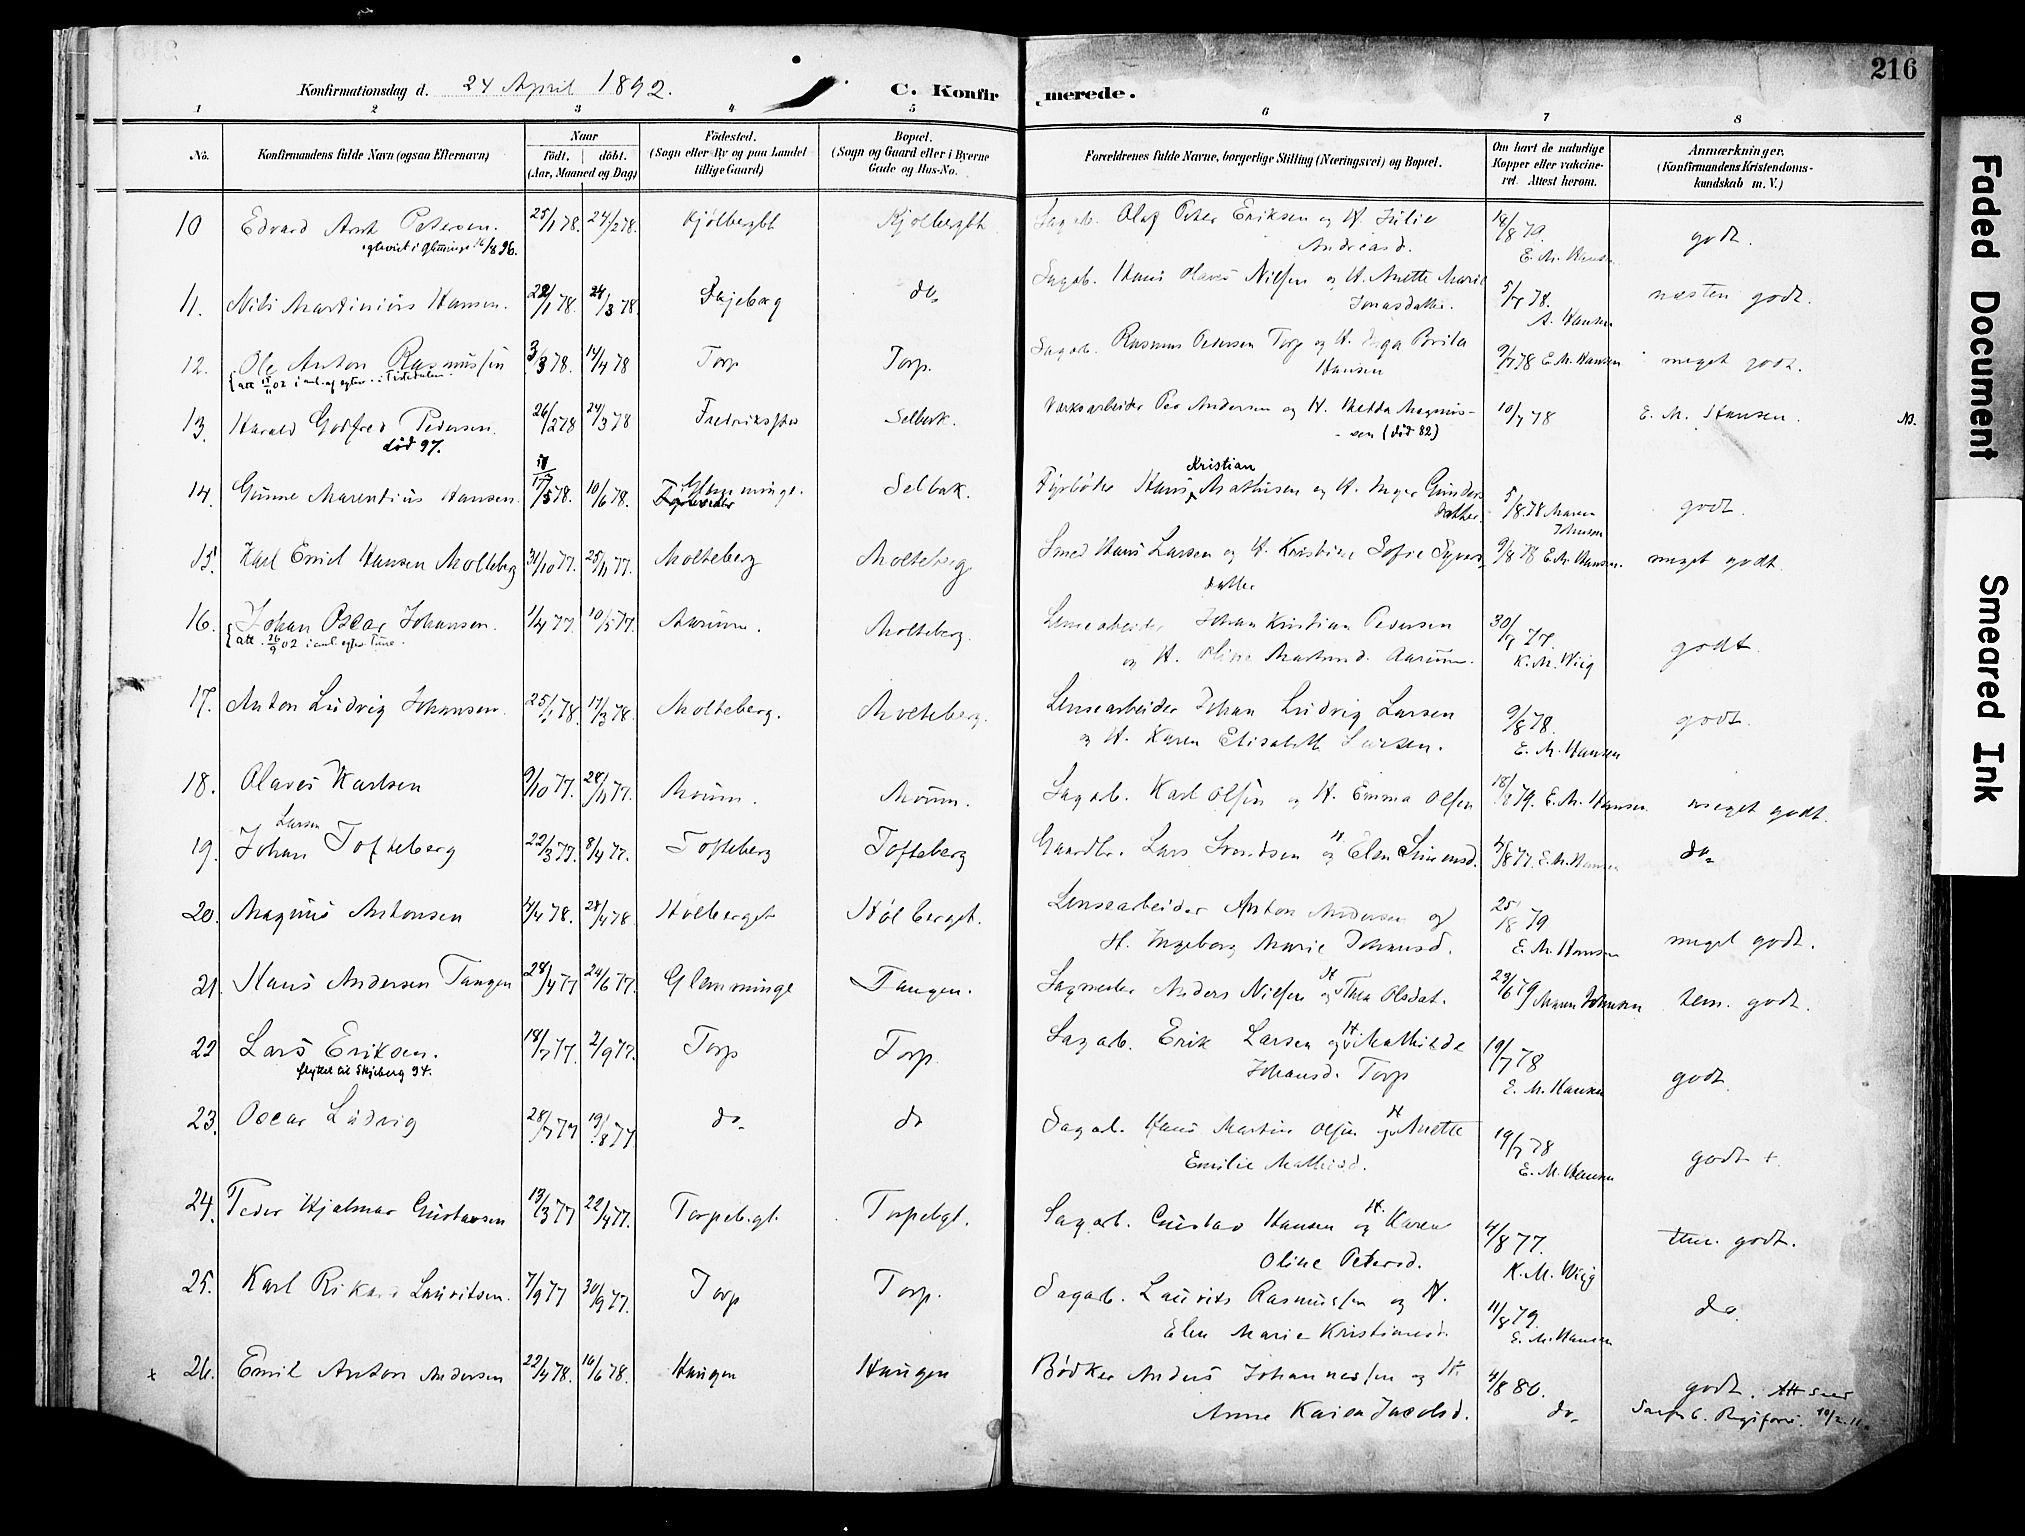 216
Konfirmationsdag d. 24 April 1892.
C. Konfirmerede.
1 2 3 4 5 6 7 8
No.
Konfirmandens fulde Navn (ogsaa Efternavn)
Naar
født. døbt.
(Aar, Maaned og Dag)
Fødested.
(Sogn eller By og paa Landet
tillige Gaard)
Bopæl.
(Sogn og Gaard eller i Byerne
Gade og Hus-No.
Forældrenes fulde Navne, borgerlige Stilling (Næringsvei) og Bopæl.
Om havt de naturlige
Kopper eller vakcine-
ret. Attest herom.
Anmærkninger.
(Konfirmandens Kristendoms-
kundskab m. V.)
10 Edvard Arnt Petersen. 25/1 78. 24/2 78. Kjølbergbt Kjølbergbt Sagarb. Olaf Peter Eriksen og H. Julie 14/8 79. godt.
i Glemminge 16/8 96. Andreasd. E. M. Hansen
11. Nils Martinius Hansen. 22/1 78. 24/3 78. Skjeberg do. Sagarb. Hans Olaves Nilsen og H. Anette Marie 5/7 78. næsten godt.
Jonasdatter. A. Hansen
12. Ole Anton Rasmussen 3/3 78. 14/4 78 Torp Torp. Sagarb. Rasmus Pedersen Torp og H. Inga Brita 9/7 78 E. M. Hansen meget godt.
Hansen
13. Harald Godfred Pedersen. 26/2 78 24/3 78 Fredriksstad Selbak. Værksarbeider Peo Andersen og H. Hedda Magnus- 10/7 78 E. M. Hansen.
død 97. -sen (død 82)
14. Gunne Marentius Hansen. 17/5 78. 10/6 78. Glemminge. Selbak. Fyrbøter Hans Kristian Mathisen og H. Inger Gunders 5/8 78 Maren godt.
datter. Johnsen
15. Karl Emil Hansen Molteberg 31/10 77. 25/11 77. Molteberg Molteberg Smed Hans Larsen og H. Kristine Sofie Syvers 9/8 78 E. M. Hansen. meget godt.
datter
16. Johan Oscar Johansen. 1/4 77. 10/5 77. Aarum. Molteberg Lensearbeider Johan Kristian Pedersen 30/7 77. godt.
att. 26/9 02 i anl. egtesk. Tune. og H. Oline Aarum. K. M. Wiig
17. Anton Ludvig Johansen. 25/1 78. 17/3 78. Molteberg. Molteberg. Lensearbeider Johan Ludvig Larsen 9/8 78. godt.
og H. Karen Elisabeth Larsen. E. M. Hansen
18. Olaves Karlsen 9/10 77. 28/11 77. Moum. Moum. Sagarb. Karl Olsen og H. Emma Olsen 79. E. M. Hansen meget godt.
19. Johan Larsen Tofteberg 22/3 77. 8/4 77. Tofteberg Tofteberg Gaardbr. Lars Svendsen og H. Elen Simensd. 8 77. E. M. Hansen do.
20. Magnus Antonsen 4/4 78. 28/4 78. Hølberget Hølberget. Lensearbeider Anton Andersen og 25/8 79
H. Ingeborg Marie Johansd. E. M. Hansen meget godt.
21. Hans Andersen Tangen 28/4 77 24/6 77. Glemminge Tangen. Sagmester Anders Nilsen og H. Thea Olsdat. 23/6 79 Maren Johnsen tem. godt.
22 Lars Eriksen. 18/7 77. 2/9 77. Torp Torp. Sagarb. Erik Larsen og H. Mathilde 19/7 78 godt.
flyttet til Skjeberg 94. Johansd. Torp E. M. Hansen
23. Oscar Ludvig 28/7 77 19/8 77 do. do Sagarb. Hans Martin Olsen og H. Anette 19/7 78 godt +
Emilie Mathisd. E. M. Hansen
24. Peder Hjalmar Gustavsen 13/3 77 22/4 77. Torpebgt. Torpebgt. Sagarb. Gustav Hansen og H. Karen 4/8 77. tem. godt.
Oline Petersd. K. M. Wiig
25. Karl Rikard Lauritsen. 7/9 77 30/9 77. Torp Torp. Sagarb. Laurits Rasmussen og H. 11/8 79. do.
Elen Marie Kristiansd. E. M. Hansen
x 26. Emil Anton Andersen 22/4 78. 16/6 78. Haugen Haugen Bødker Anders Johannessen og H. 4/8 80. godt. Att
Anne Karen Jacobsd. do. 10/2 11.
Faded Document
Smeared Ink